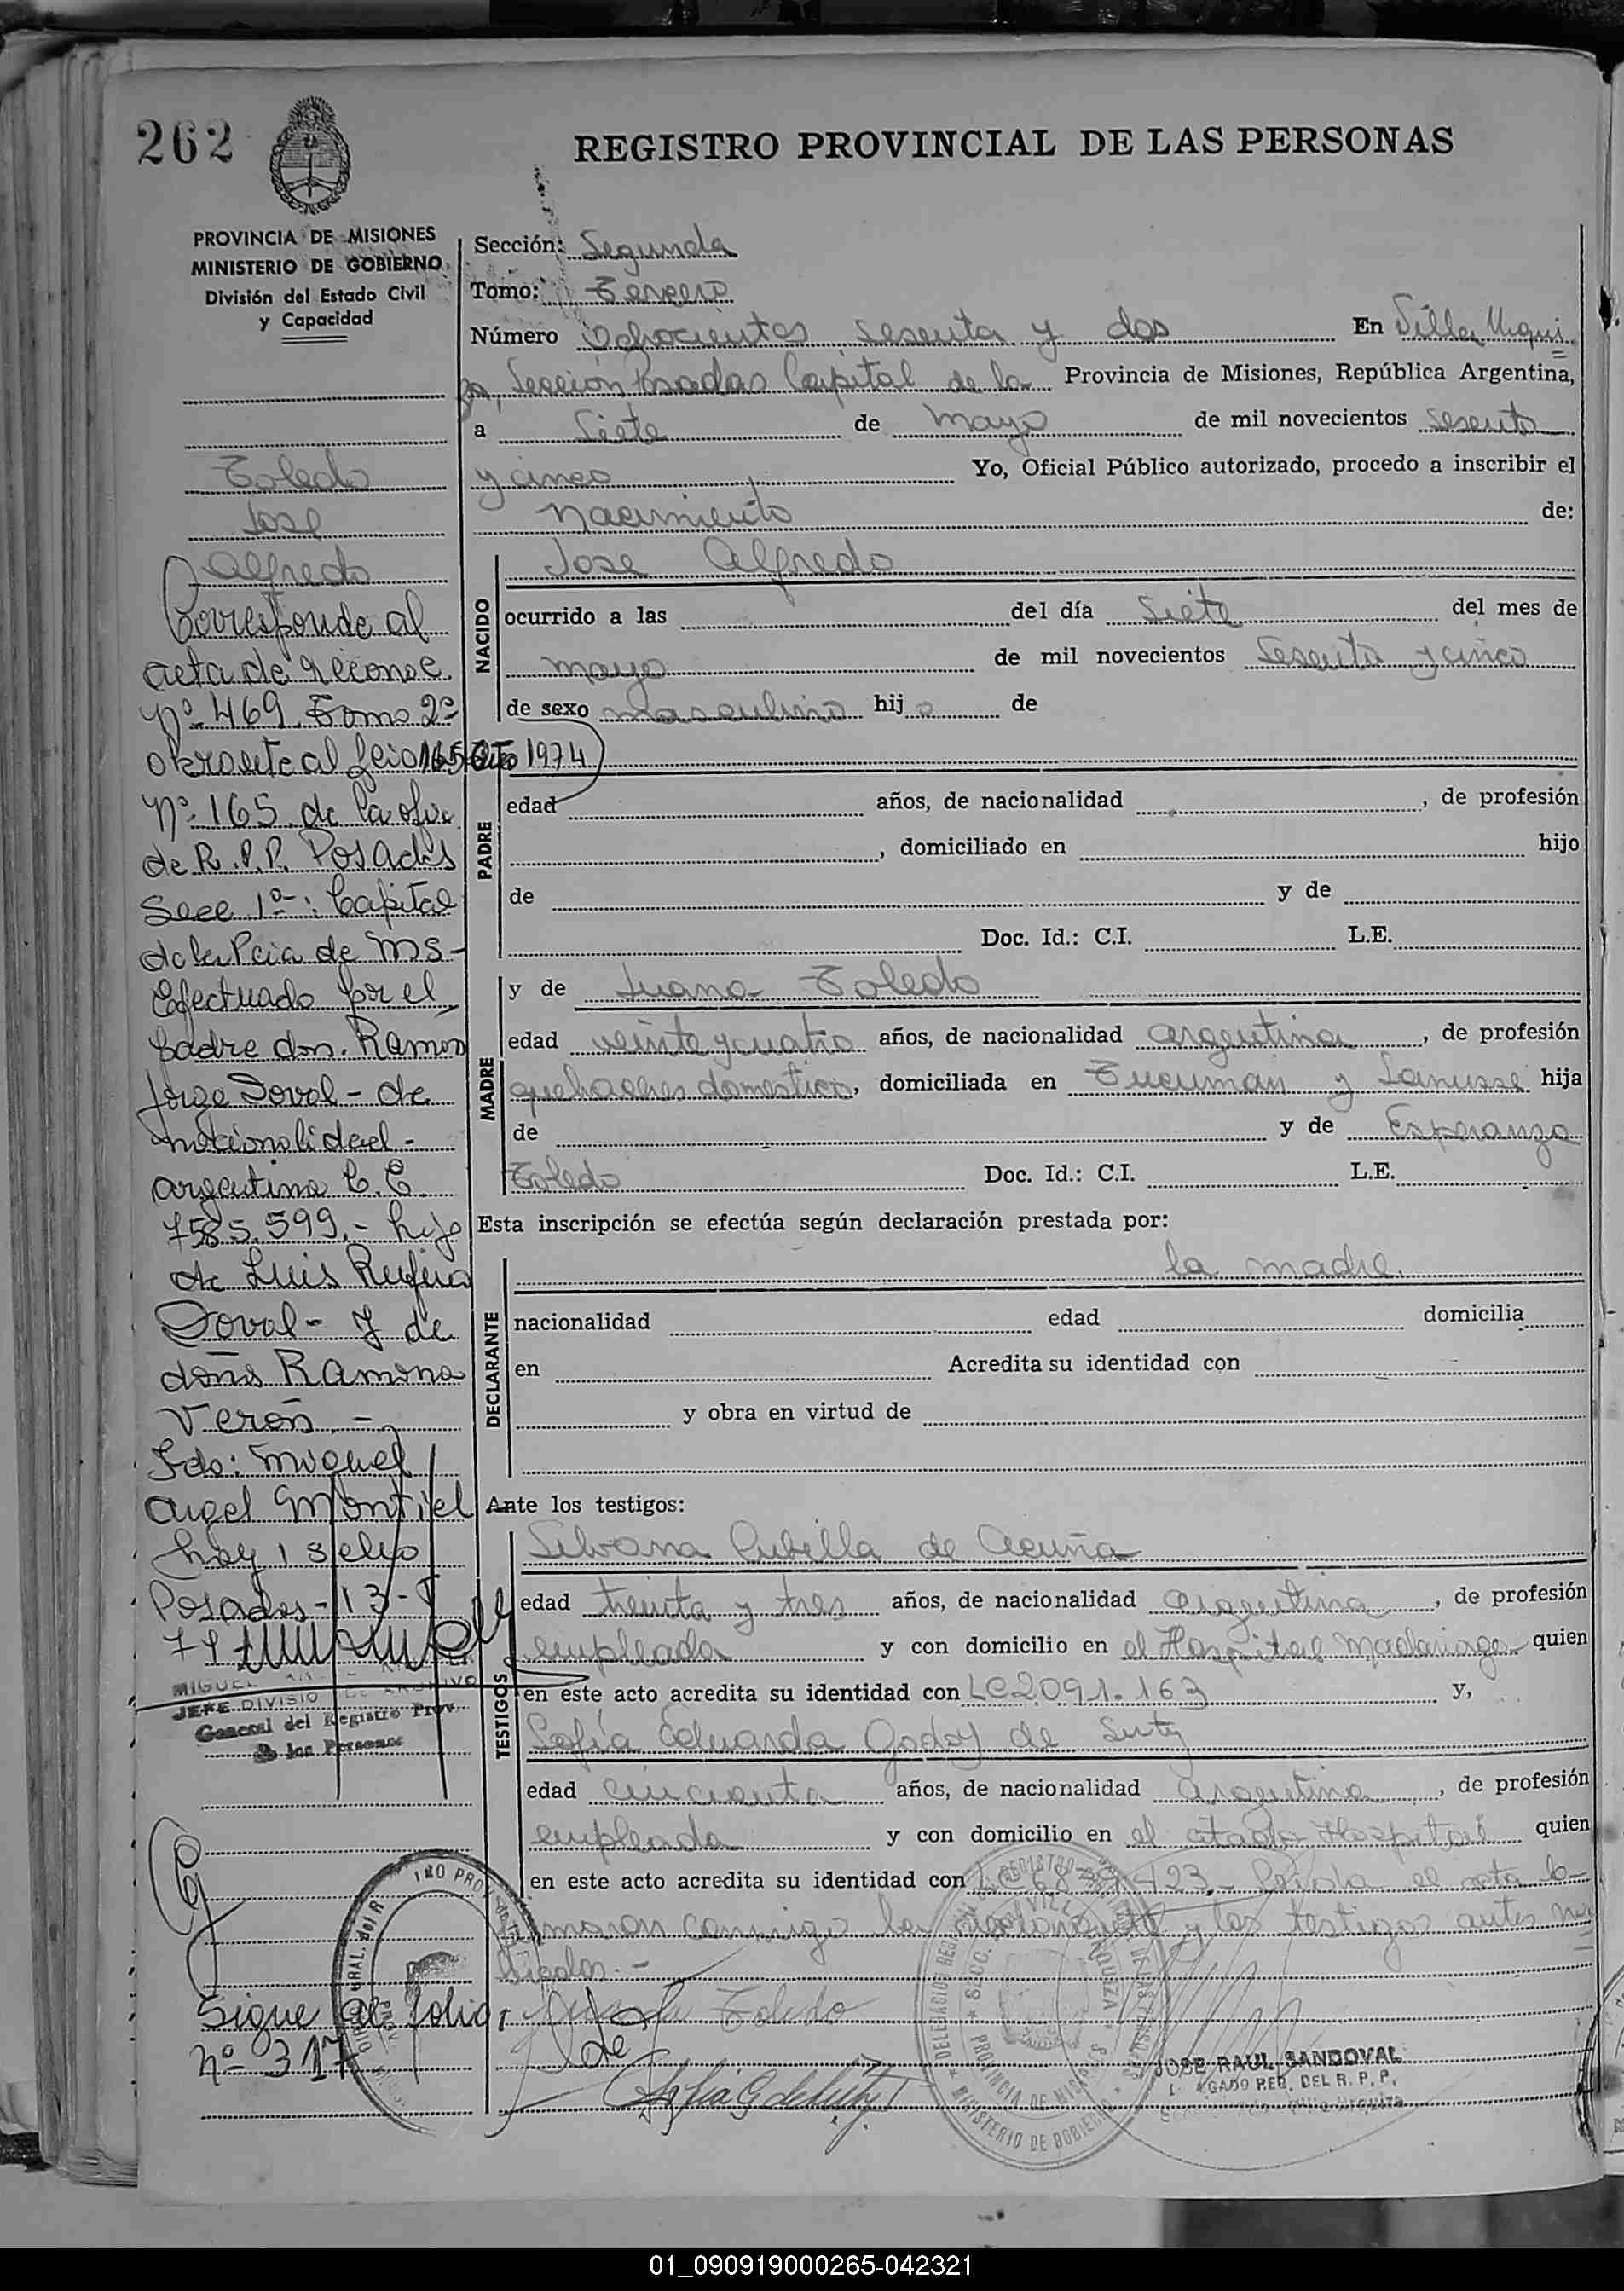 262
REGISTRO PROVINCIAL DE LAS PERSONAS
PROVINCIA DE MISIONES
MINISTERIO DE GOBIERNO
División del Estado Civil
y Capacidad
Toledo
Jose
Alfredo
Corresponde al
acta de reconoc.
Nº 469 Tomo 2º
obrante al folio 165 Año 1974
Nº 165 de la ofic
de R.P.P. Posadas
Secc 1ª: Capital
de la Pcia de MS-
Efectuado por el
padre don. Ramón
Jorge Doval - de
nacionalidad -
argentina
7585.599.- hijo
de Luis Rufino
Doval - y de
doña Ramona
Verón -
Fdo: Miguel
Angel Montiel
hay 1 sello
Posadas - 13-
74
MIGUEL
JEFE DIVISIO DE ARCHIVO
General del Registro Prov.
de las Personas
Sigue al folio
nº 317
Sección: Segunda
Tomo: Tercero
Número Ochocientos sesenta y dos En Villa Urqui
za, Sección Posadas Capital de la Provincia de Misiones, República Argentina,
a Siete de Mayo de mil novecientos sesenta
y cinco Yo, Oficial Público autorizado, procedo a inscribir el
Nacimiento de:
NACIDO
Jose Alfredo
ocurrido a las del día Siete del mes de
mayo de mil novecientos Sesenta y cinco
de sexo masculino hijo de
PADRE
edad años, de nacionalidad , de profesión
, domiciliado en hijo
de y de
Doc. Id.: C.I. L.E.
MADRE
y de Juana Toledo
edad veinte y cuatro años, de nacionalidad argentina, de profesión
quehaceres domestico, domiciliada en Tucuman y Lanusse hija
de y de Esperanza
Toledo Doc. Id.: C.I. L.E.
Esta inscripción se efectúa según declaración prestada por:
DECLARANTE
la madre.
nacionalidad edad domicilia
en Acredita su identidad con
y obra en virtud de
Ante los testigos:
TESTIGOS
Silvana Cubilla de Acuña
edad treinta y tres años, de nacionalidad argentina, de profesión
empleada y con domicilio en el Hospital Madariaga quien
en este acto acredita su identidad con LC2091.163 y,
Sofía Eduarda Godoy de
edad cincuenta años, de nacionalidad argentina, de profesión
empleada y con domicilio en el citado Hospital quien
en este acto acredita su identidad con 423.- Leida el acta la
firmaron conmigo la y los testigos antes
Toledo
de
JOSE RAUL SANDOVAL
REG. DEL R. P. P.
PROVINCIA DE MISIONES
MINISTERIO DE GOBIERNO
01_090919000265-042321